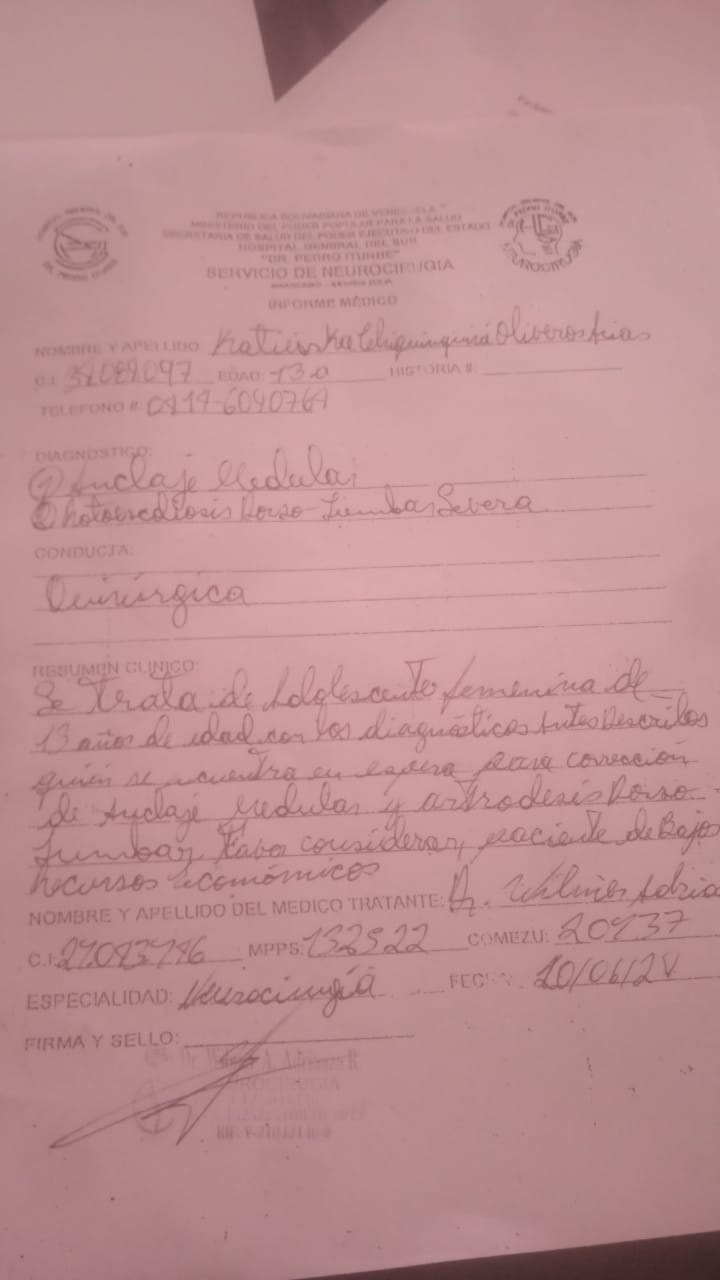 REPUBLICA BOLIVARIANA DE VENEZUELA
MINISTERIO DEL PODER POPULAR PARA LA SALUD
SECRETARIA DE SALUD DEL PODER EJECUTIVO DEL ESTADO
HOSPITAL GENERAL DEL SUR
"DR. PEDRO ITURBE"
SERVICIO DE NEUROCIRUGIA
INFORME MÉDICO
NOMBRE Y APELLIDO: Chiquinquirá Oliveros Arias
C.I: EDAD: 13 a HISTORIA #:
TELEFONO #:
DIAGNOSTICO:
① Anclaje Medular
② Rotoescoliosis Dorso-Lumbar Severa
CONDUCTA:
Quirúrgica
RESUMEN CLINICO:
Se trata de Adolescente femenina de
13 años de edad con los diagnósticos Antes Descritos
quien se encuentra en espera para corrección
de Anclaje Medular y artrodesis Dorso
Lumbar, Favor considerar, paciente de Bajos
Recursos Económicos
NOMBRE Y APELLIDO DEL MEDICO TRATANTE: Dr.
C.I: MPPS: 132522 COMEZU: 20137
ESPECIALIDAD: Neurocirugía FECHA: 20/06/24
FIRMA Y SELLO: